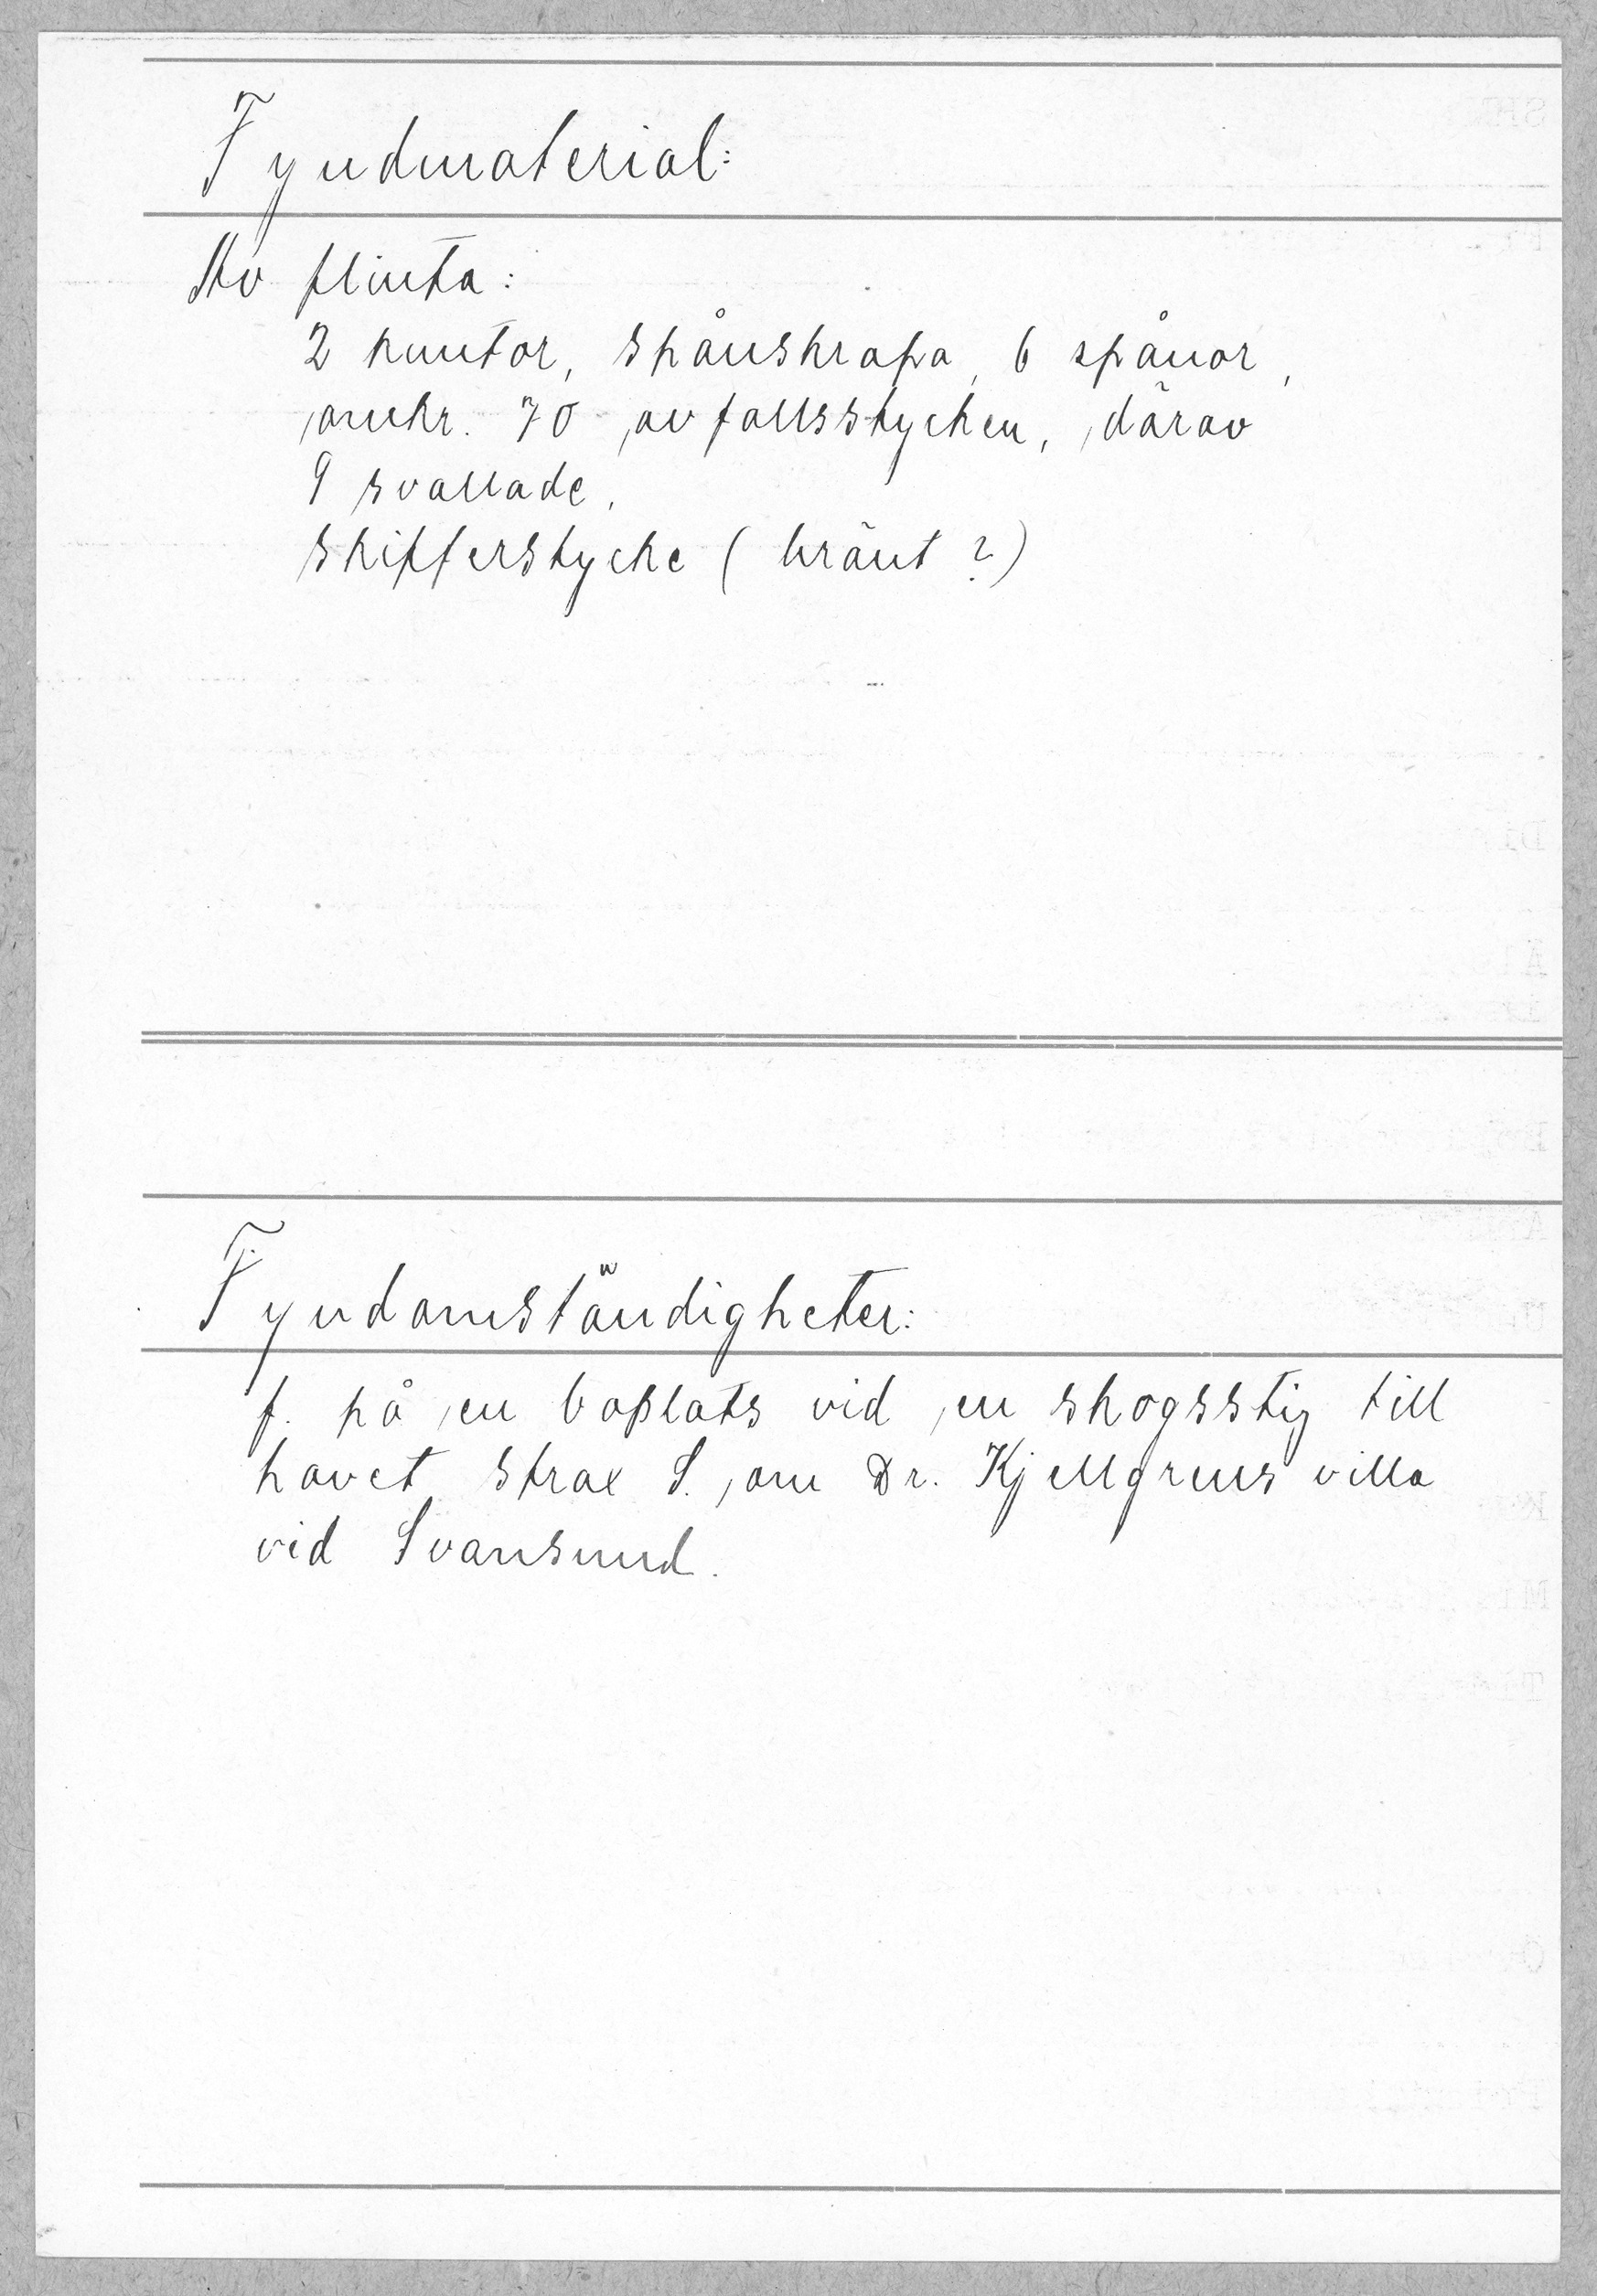 Fyndmaterial:
Av flinta:
2 knutor, spånskrapa, 6 spånor,
omkr. 70 avfallsstycken, därav
9 svallade.
skifferstycke (bränt?)
Fyndomständigheter:
f. på en boplats vid en skogsstig till
havet strax S. om Dr. Kjellgrens villa
vid Svansund.